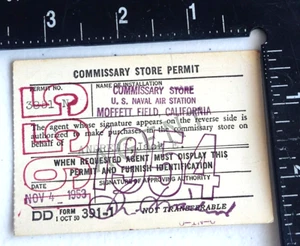 COMMISSARY STORE PERMIT
PERMIT NO.
NAME OF INSTALLATION
COMMISSARY STORE
U. S. NAVAL AIR STATION
MOFFETT FIELD, CALIFORNIA
The agent whose signature appears on the reverse side is
authorized to make purchases in the commissary store on
behalf of
WHEN REQUESTED AGENT MUST DISPLAY THIS
PERMIT AND FURNISH IDENTIFICATION
DATE
SIGNATURE OF APPROVING AUTHORITY
NOV 4 - 1963
DD FORM 391-1
1 OCT 10
NOT TRANSFERABLE
1
2
3